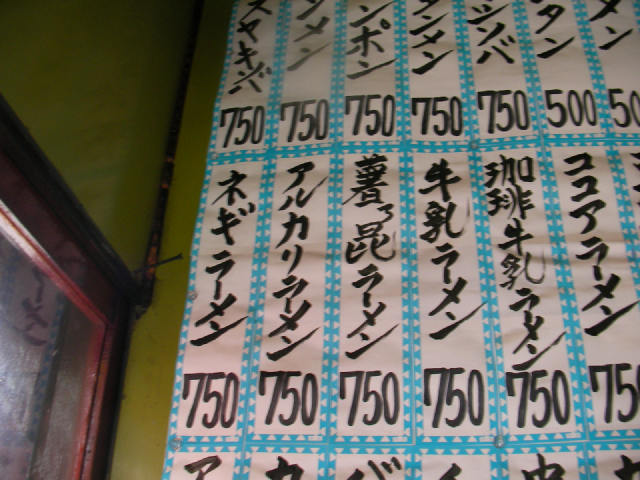 メン
タン
500
ツソバ
750
タンメン
750
ンポン
750
ンメン
750
ヤキソバ
750
ココアラーメン
750
珈琲牛乳ラーメン
750
牛乳ラーメン
750
昆ラーメン
750
アルカリラーメン
750
ネギラーメン
750
バ
カ
ア